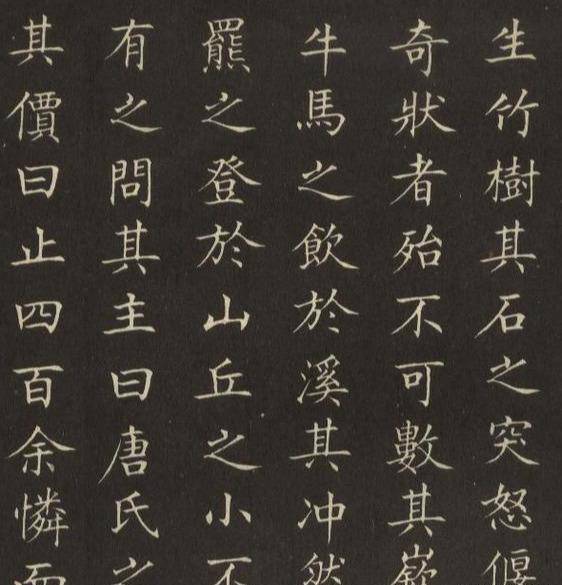 生竹樹其石之突怒偃
奇狀者殆不可數其嶔
牛馬之飲於溪其冲然
羆之登於山丘之小不
有之問其主曰唐氏之
其價曰止四百余憐而